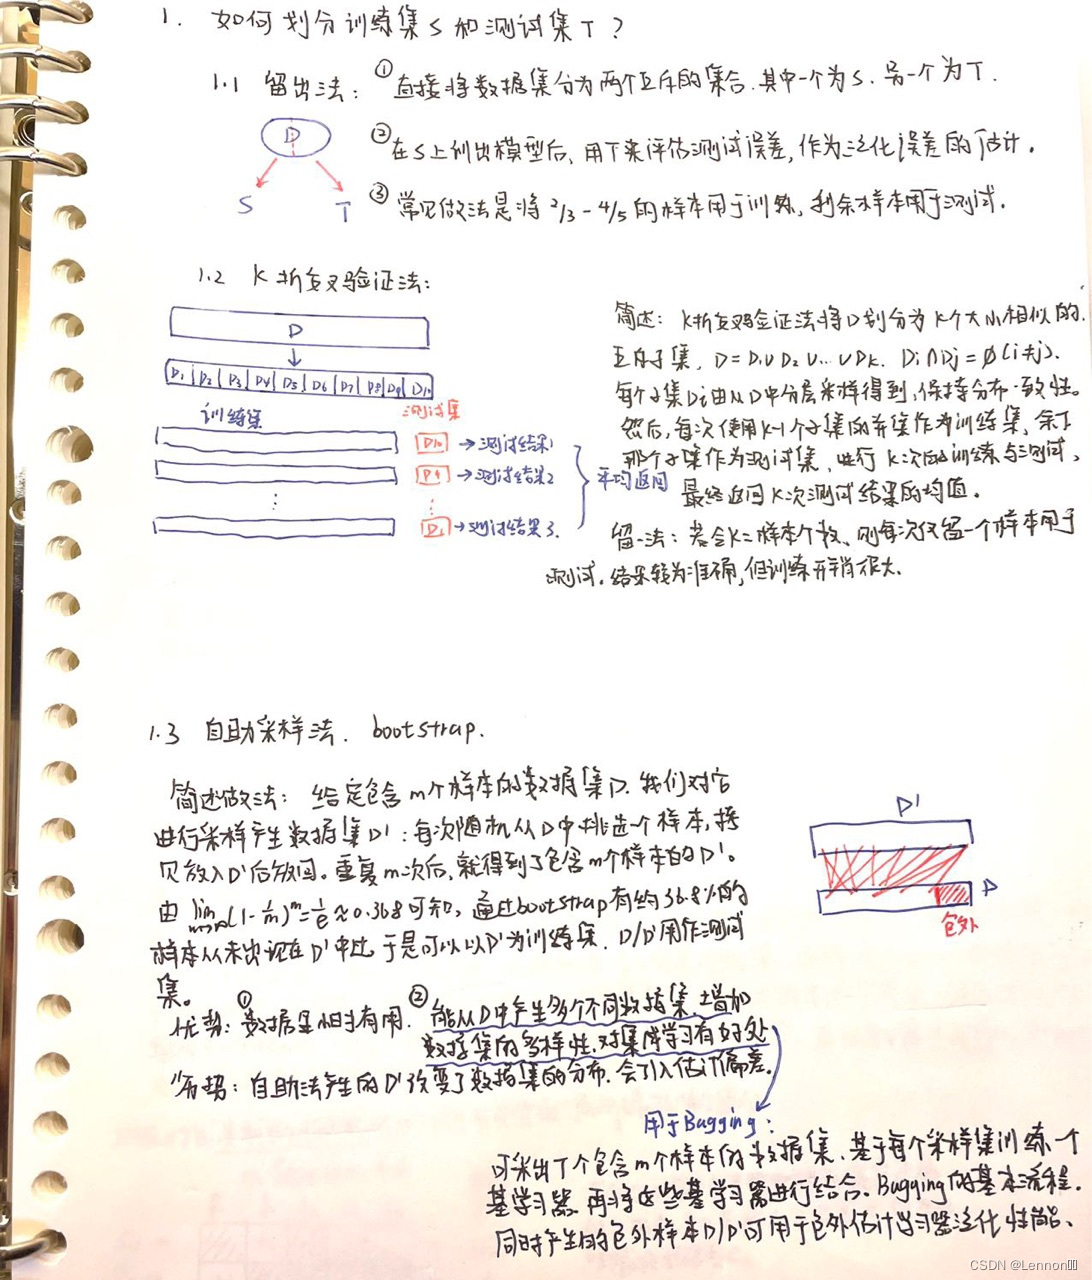 1. 如何划分训练集S和测试集T?
1.1 留出法: ①直接将数据集分为两个互斥的集合.其中一个为S.另一个为T.
D
②在S上训出模型后,用T来评估测试误差,作为泛化误差的估计.
S T
③常见做法是将2/3-4/5的样本用于训练,剩余样本用于测试.
1.2 K折交叉验证法:
D
D1 D2 D3 D4 D5 D6 D7 D8 D9 D10
训练集 测试集
D10 →测试结果1
D9 →测试结果2
⋮ ⋮
D1 →测试结果3.
平均返回
简述: K折交叉验证法将D划分为K个大小相似的.
互斥子集, D=D1∪D2∪...∪Dk. Di∩Dj=∅(i≠j).
每个子集Di由从D中分层采样得到,保持分布一致性。
然后,每次使用K-1个子集的并集作为训练集,余下
那个子集作为测试集,进行K次的训练与测试,
最终返回K次测试结果的均值。
留一法: 若令K=样本个数、则每次仅留一个样本用于
测试.结果较为准确,但训练开销很大.
1.3 自助采样法. bootstrap.
简述做法: 给定包含m个样本的数据集D.我们对它
进行采样产生数据集D':每次随机从D中挑选个样本,拷
贝放入D'后放回。重复m次后,就得到了包含m个样本的D'。
由 lim m→∞(1-1/m)^m=1/e≈0.368可知,通过bootstrap有约36.8%的
样本从未出现在D'中过 于是可以以D'为训练集. D/D'用作测试
集。
D'
D
包外
优势: ①数据量小时有用. ②能从D中产生多个不同数据集.增加
数据集的多样性.对集成学习有好处
劣势: 自助法产生的D'改变了数据集的分布.会引入估计偏差.
用于Bagging:
可采出T个包含m个样本的数据集、基于每个采样集训练一个
基学习器.再将这些基学习器进行结合。Bagging的基本流程.
同时产生的包外样本D/D'可用于包外估计学习器泛化性能、
CSDN @Lennon